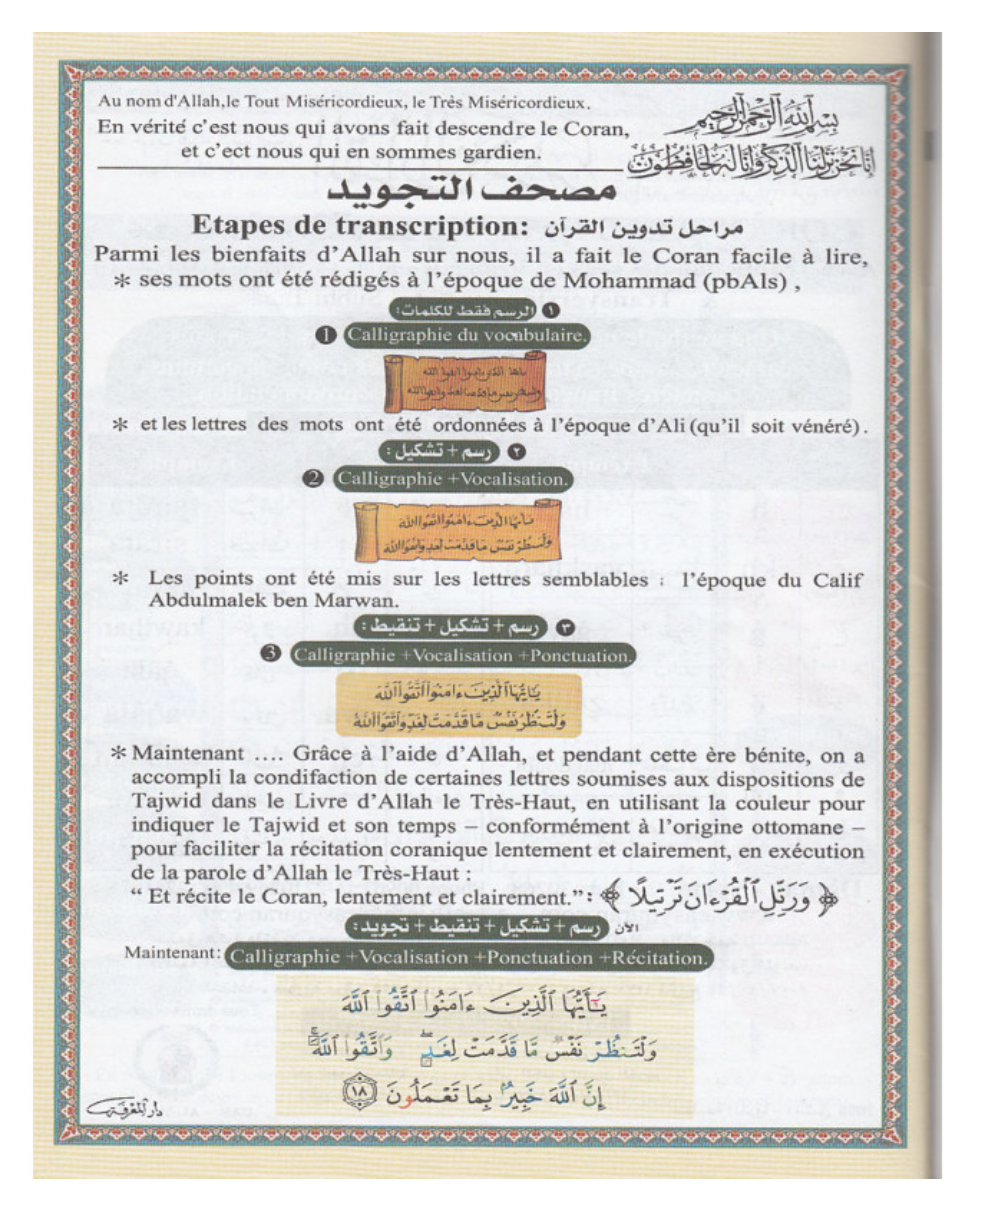 Au nom d'Allah,le Tout Miséricordieux, le Très Miséricordieux.
بِسْمِ اللَّهِ الرَّحْمَٰنِ الرَّحِيمِ
En vérité c'est nous qui avons fait descendre le Coran,
et c'ect nous qui en sommes gardien.
إِنَّا نَحْنُ نَزَّلْنَا الذِّكْرَ وَإِنَّا لَهُ لَحَافِظُونَ
مصحف التجويد
Etapes de transcription: مراحل تدوين القرآن
Parmi les bienfaits d'Allah sur nous, il a fait le Coran facile à lire,
* ses mots ont été rédigés à l'époque de Mohammad (pbAls) ,
١ الرسم فقط للكلمات:
1 Calligraphie du vocabulaire.
* et les lettres des mots ont été ordonnées à l'époque d'Ali (qu'il soit vénéré).
٢ رسم + تشكيل :
2 Calligraphie +Vocalisation.
يَٰأَيُّهَا الَّذِينَ ءَامَنُوا اتَّقُوا اللَّهَ
وَلْتَنظُرْ نَفْسٌ مَا قَدَّمَتْ لِغَدٍ وَاتَّقُوا اللَّهَ
* Les points ont été mis sur les lettres semblables : l'époque du Calif
Abdulmalek ben Marwan.
٣ رسم + تشكيل + تنقيط :
3 Calligraphie +Vocalisation +Ponctuation.
يَٰأَيُّهَا الَّذِينَ ءَامَنُوا اتَّقُوا اللَّهَ
وَلْتَنظُرْ نَفْسٌ مَّا قَدَّمَتْ لِغَدٍ وَاتَّقُوا اللَّهَ
* Maintenant .... Grâce à l'aide d'Allah, et pendant cette ère bénite, on a
accompli la condifaction de certaines lettres soumises aux dispositions de
Tajwid dans le Livre d'Allah le Très-Haut, en utilisant la couleur pour
indiquer le Tajwid et son temps – conformément à l'origine ottomane –
pour faciliter la récitation coranique lentement et clairement, en exécution
de la parole d'Allah le Très-Haut :
“ Et récite le Coran, lentement et clairement.”: ﴿ وَرَتِّلِ الْقُرْءَانَ تَرْتِيلًا ﴾
الآن رسم + تشكيل + تنقيط + تجويد :
Maintenant: Calligraphie +Vocalisation +Ponctuation +Récitation.
يَٰأَيُّهَا الَّذِينَ ءَامَنُوا اتَّقُوا اللَّهَ
وَلْتَنظُرْ نَفْسٌ مَّا قَدَّمَتْ لِغَدٍ وَاتَّقُوا اللَّهَ
إِنَّ اللَّهَ خَبِيرٌ بِمَا تَعْمَلُونَ ١٨
دار المعرفة